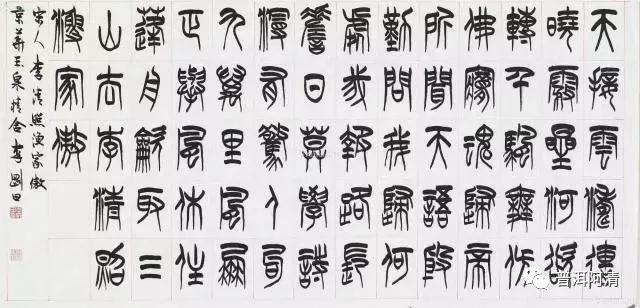 天接雲濤連
曉霧星河欲
轉千帆舞仿
佛夢魂歸帝
所聞天語殷
勤問我歸何
處我報路長
嗟日暮學詩
謾有驚人句
九萬里風鵬
正舉風休住
蓬舟吹取三
山去李清照
漁家傲
宋人李清照漁家傲
京華玉泉精舍李剛田
普洱阿清